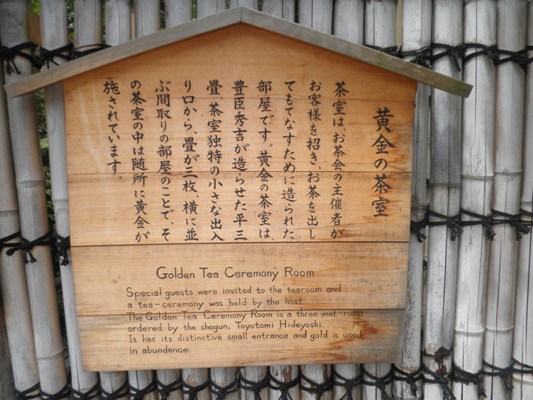 黄金の茶室
茶室は、お茶会の主催者が
お客様を招き、お茶を出し
てもてなすために造られた
部屋です。黄金の茶室は
豊臣秀吉が造らせた平三
畳 茶室独特の小さな出入
り口から、畳が三枚、横に並
ぶ間取りの部屋のことで、そ
の茶室の中は随所に黄金が
施されています。
Golden Tea Ceremony Room
Special guests were invited to the tearoom and
a tea-ceremony was held by the host.
The Golden Tea Ceremony Room is a three mat-room
ordered by the shogun, Toyotomi Hideyoshi.
It has its distinctive small entrance and gold is used
in abundance.